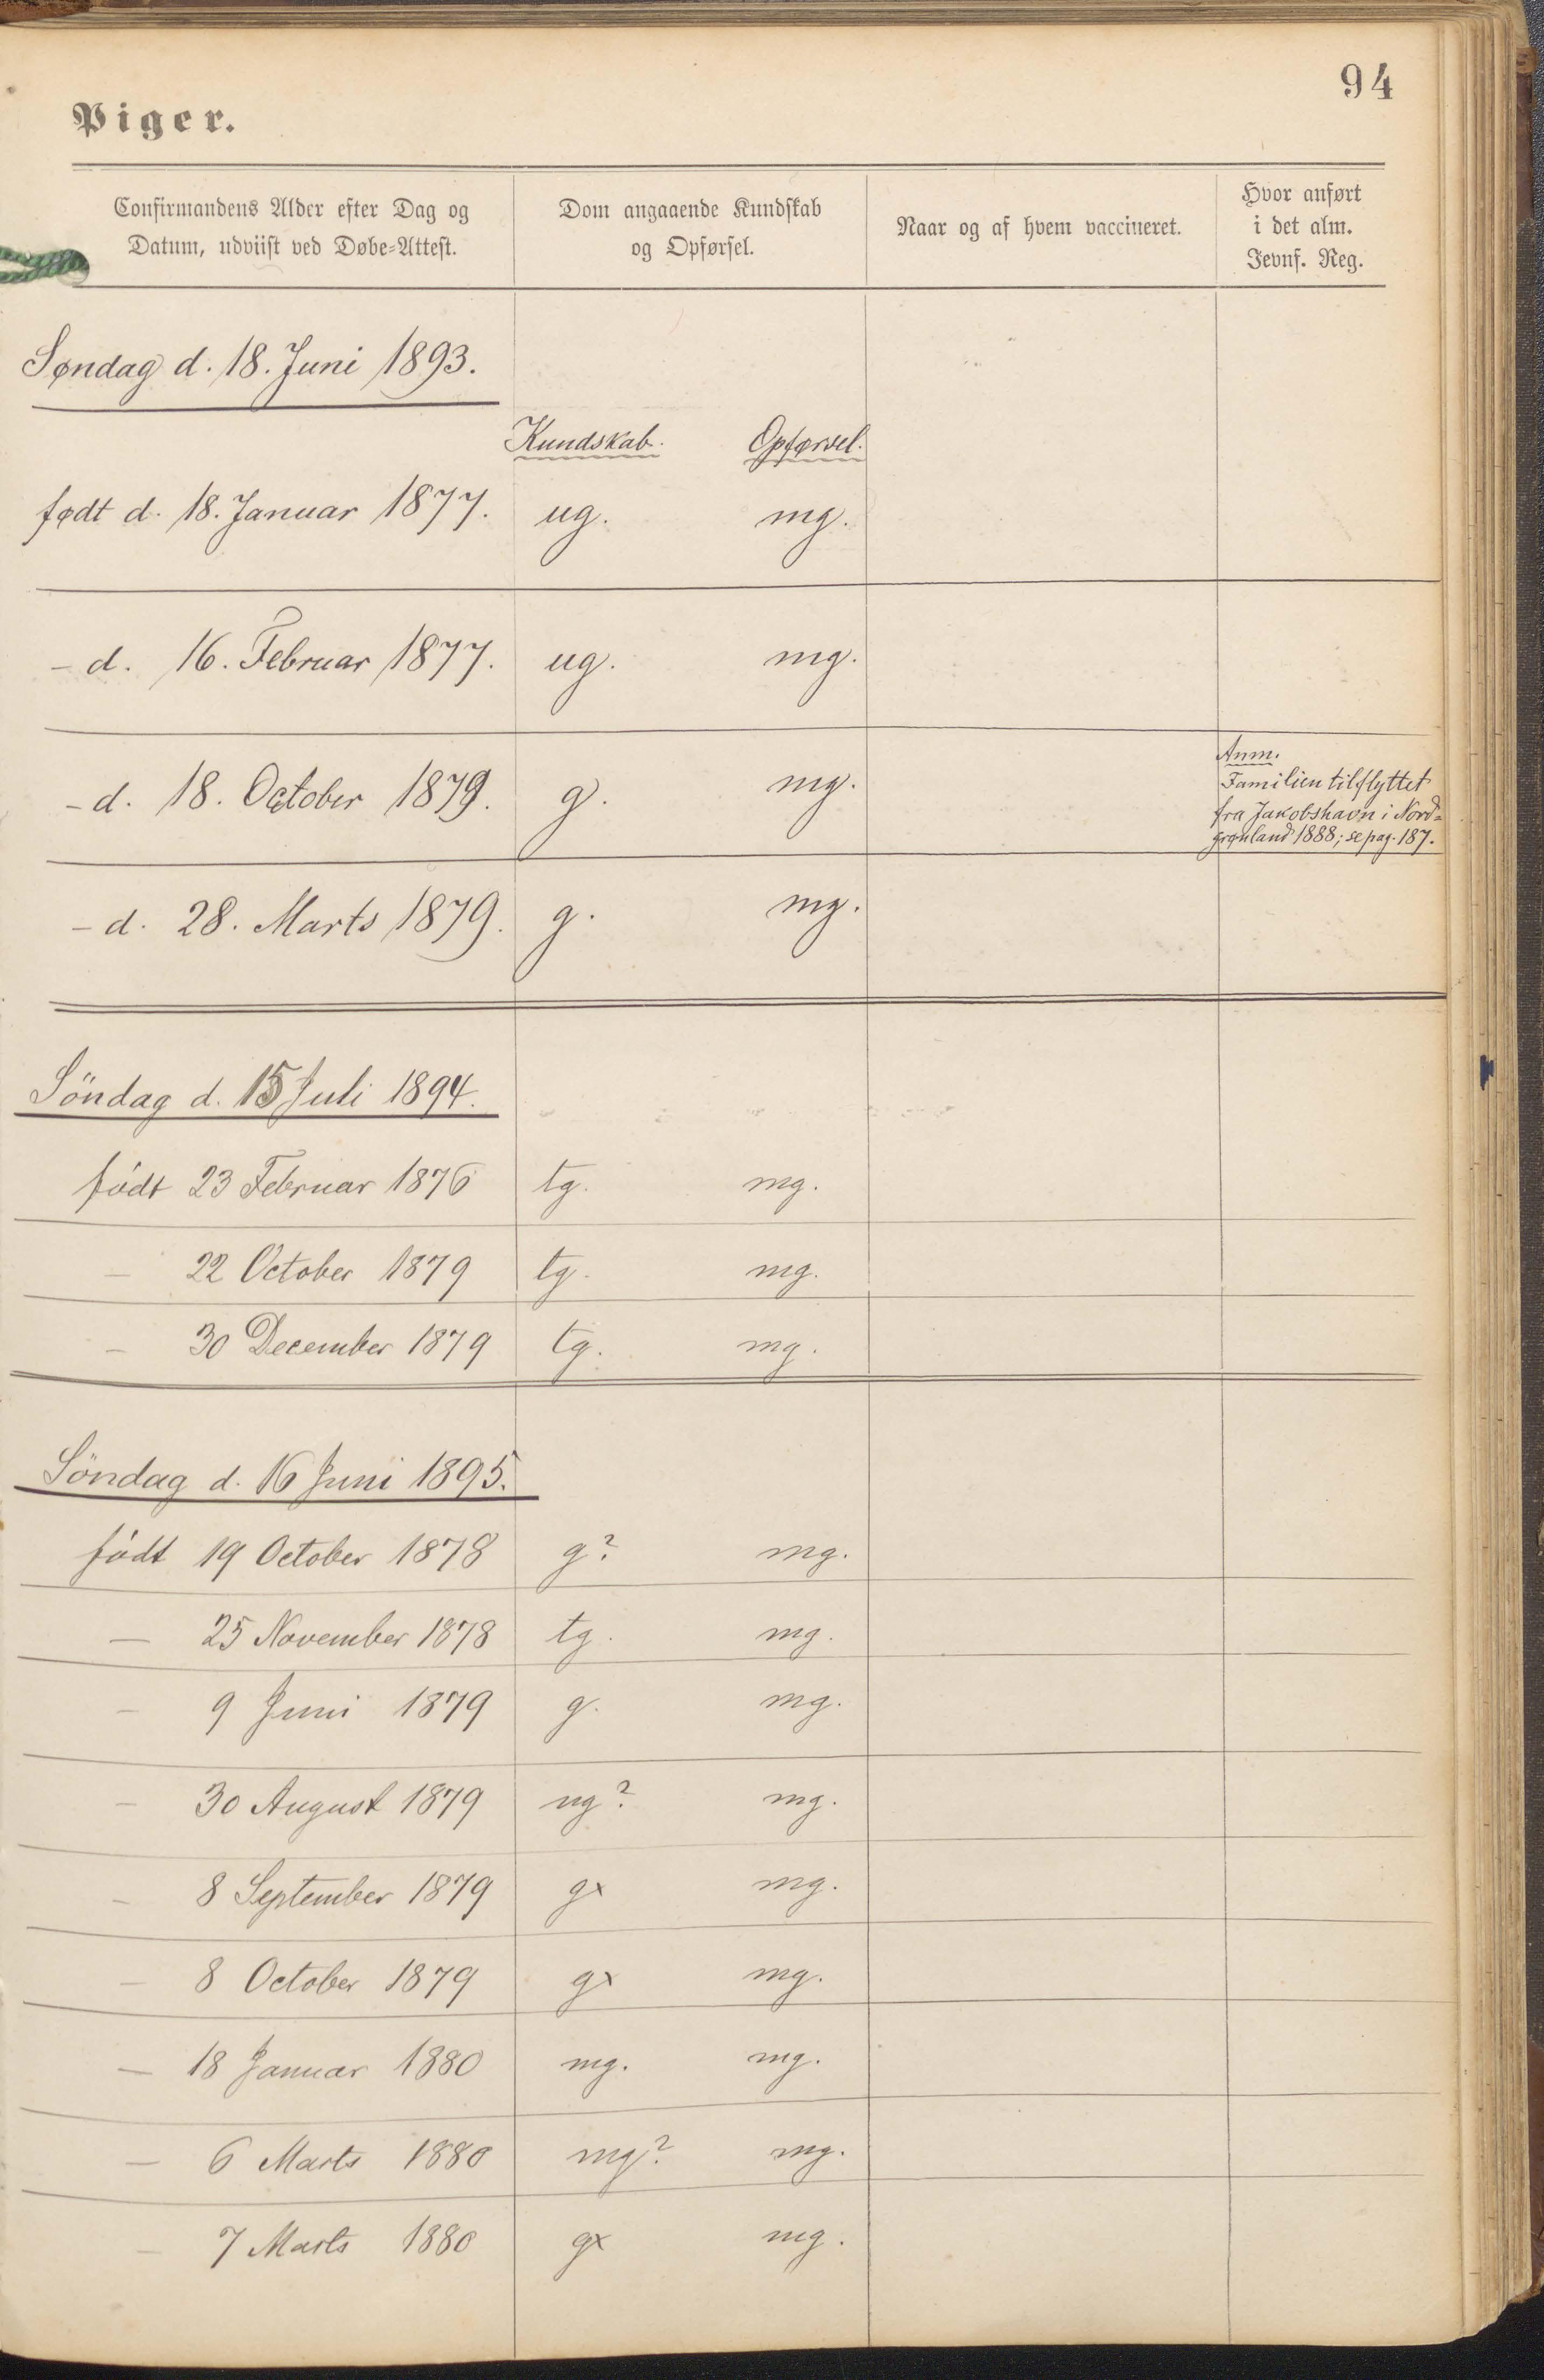 94
Piger.
Confirmandens Alder efter Dag og
Datum, udviist ved Døbe-Attest.
Dom angaaende Kundskab
og Opførsel.
Naar og af hvem vaccineret.
Hvor anført
i det alm.
Jevnf. Reg.
Søndag d. 18. Juni 1893.
Kundskab. Opførsel.
født d. 18. Januar 1877. ug. mg.
- d. 16. Februar 1877. ug. mg.
- d. 18. October 1879. g. mg.
Anm.
Familien tilflyttet
fra Jakobshavn i Nord-
grønland 1888; se pag. 187.
- d. 28. Marts 1879. g. mg.
Söndag d. 15 Juli 1894.
födt 23 Februar 1876 tg. mg.
- 22 October 1879 tg. mg.
- 30 December 1879 tg. mg.
Söndag d. 16 Juni 1895.
födt 19 October 1878 g? mg.
- 25 November 1878 tg. mg.
- 9 Juni 1879 g. mg.
- 30 August 1879 ug? mg.
- 8 September 1879 gx mg.
- 8 October 1879 gx mg.
- 18 Januar 1880 mg. mg.
- 6 Marts 1880 mg? mg.
- 7 Marts 1880 gx mg.